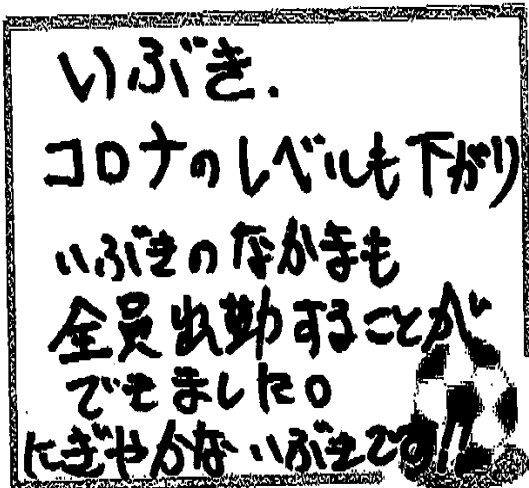 いぶき.
コロナのレベルも下がり
いぶきのなかまも
全員出勤することが
できました。
にぎやかないぶきです